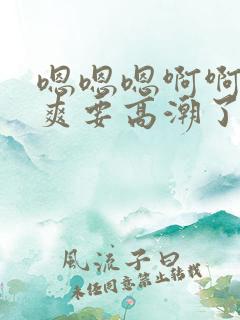 嗯嗯嗯啊啊
爽要高潮了
風流子曰
未任同意禁止转载